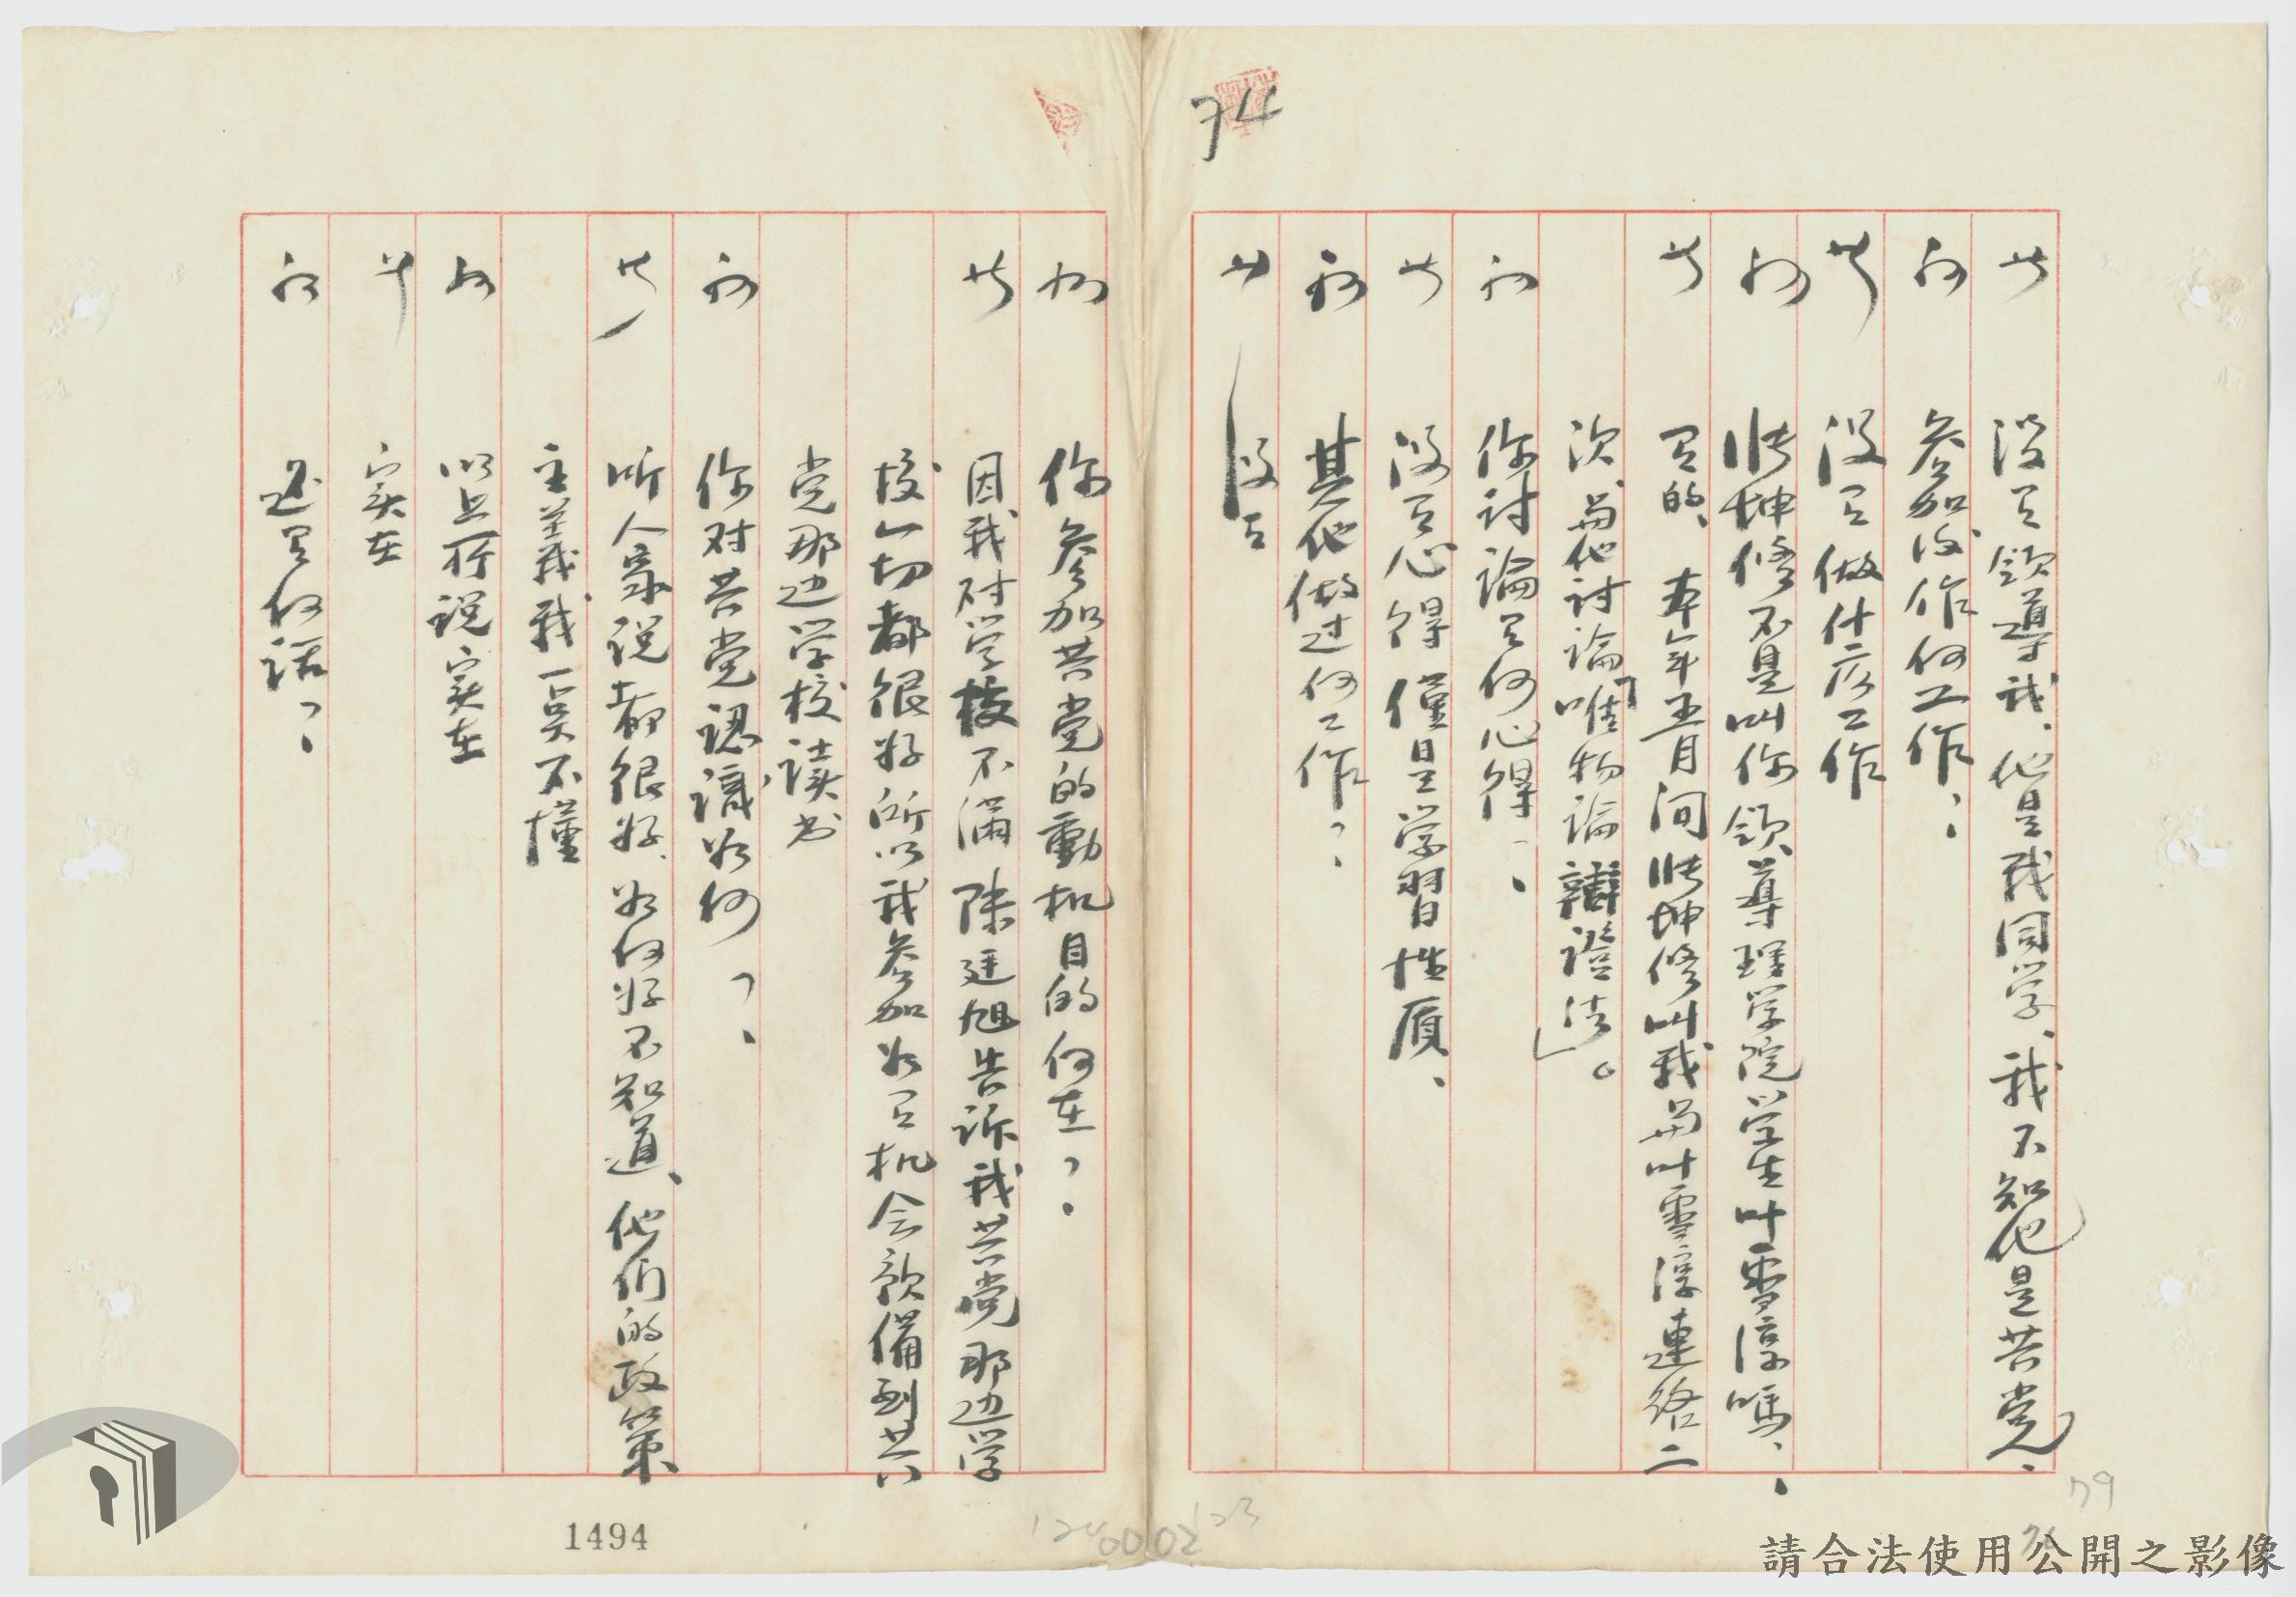 答 没有領導我、他是我同学、我不知他是共党、
问 参加後作何工作？
答 没有做什麽工作
问 张坤修不是叫你領導理学院学生叶雪淳嗎、
答 有的、本年五月间张坤修叫我与叶雪淳連絡二
次、与他討論「唯物論辯證法」。
问 你討論有何心得？
答 没有心得僅是学習性质、
问 其他做过何工作？
答 没有
问 你参加共党的動机目的何在？
答 因我对学校不满 陈廷旭告诉我共党那边学
校一切都很好所以我参加如有机会欵備到共
党那边学校读书
问 你对共党認識如何？
答 听人家说都很好、如何好不知道、他们的政策、
主義我一点不懂
问 以上所说实在
答 实在
问 还有何话？
74
79
1494
請合法使用公開之影像